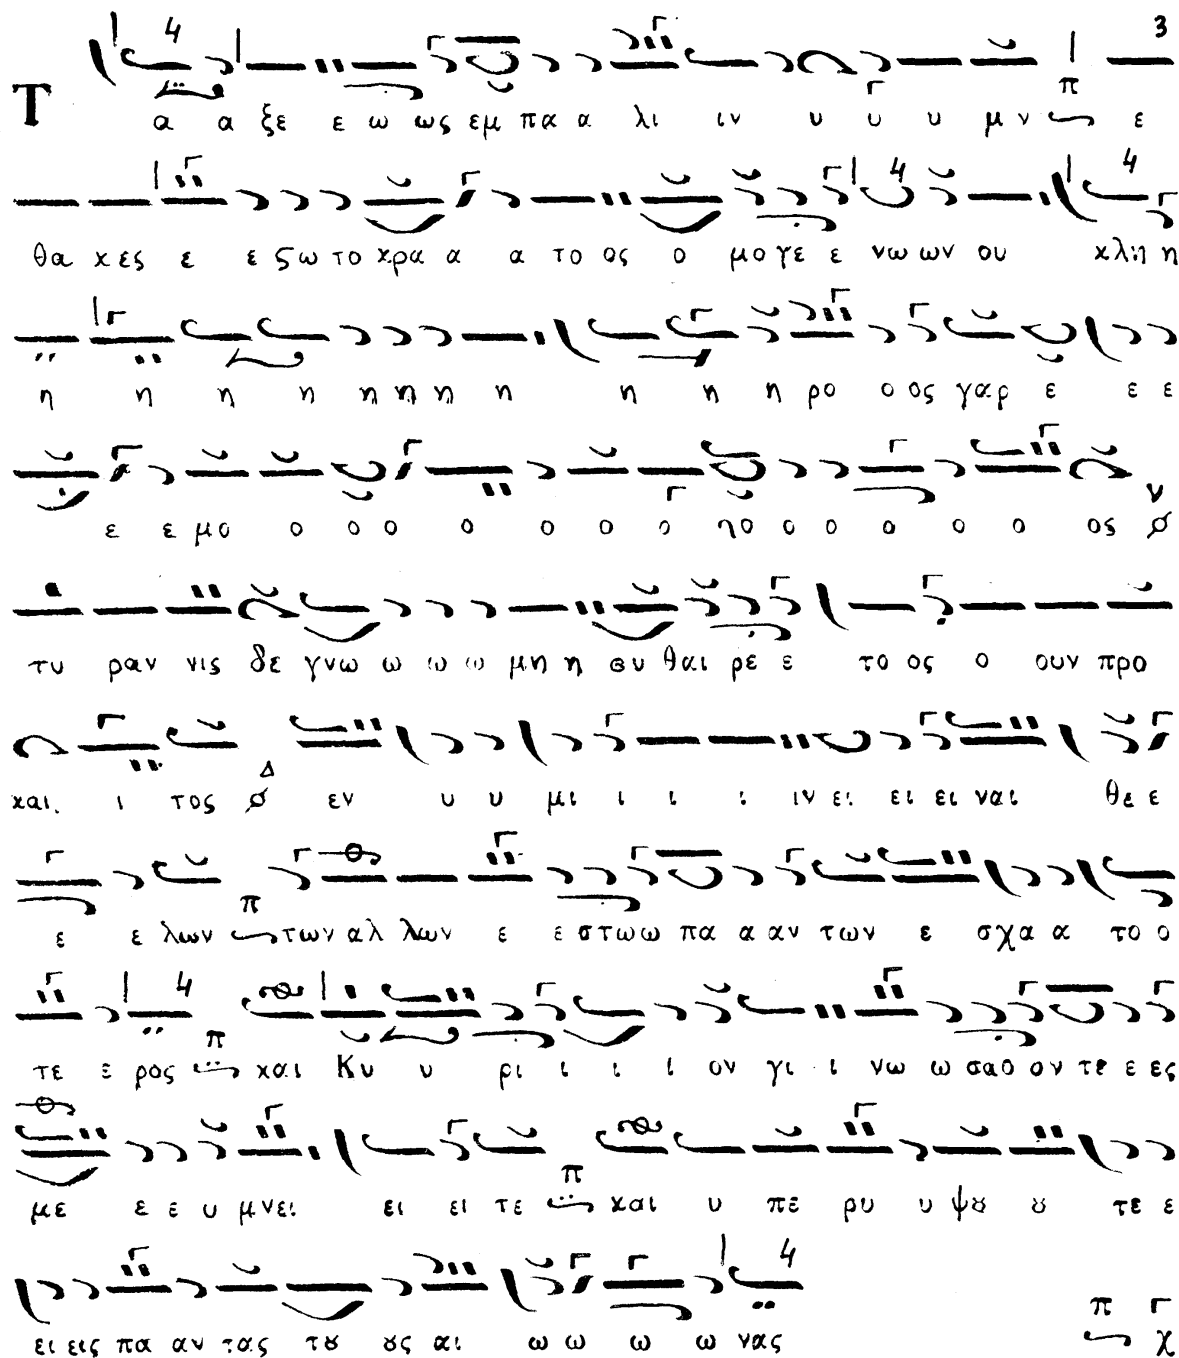 3
Τ α α ξε ε ω ως εμ πα α α λι ιν υ υ υ μν π ε
θα κες ε ε ζω το κρα α α α το ος ο μο γε ε νω ων ου κλι η η
η η η η η η η η η η η ρο ο ος γαρ ε ε ε
ε ε μο ο ο ο ο ο ο ο ο ο ο ο ο ο ος ν
τυ ραν νις δε γνω ω ω ω μη η αυ θαι ρε ε το ος ο ουν προ
και ι τος Δ εν υ υ μι ι ι ι ιν ει ει ει ει ναι θε ε
ε ε λων π των αλ λων ε ε στω ω πα α αν των ε σχα α το ο
τε ε ρος π και Κυ υ ρι ι ι ι ον γι ι νω ω σαθ ον τε ε ες
με ε ε υ μνει ει ει τε π και υ πε ρυ υ ψȣ ȣ τε ε
ει εις πα αν τας τȣ ȣς αι ω ω ω ω νας π Γ χ